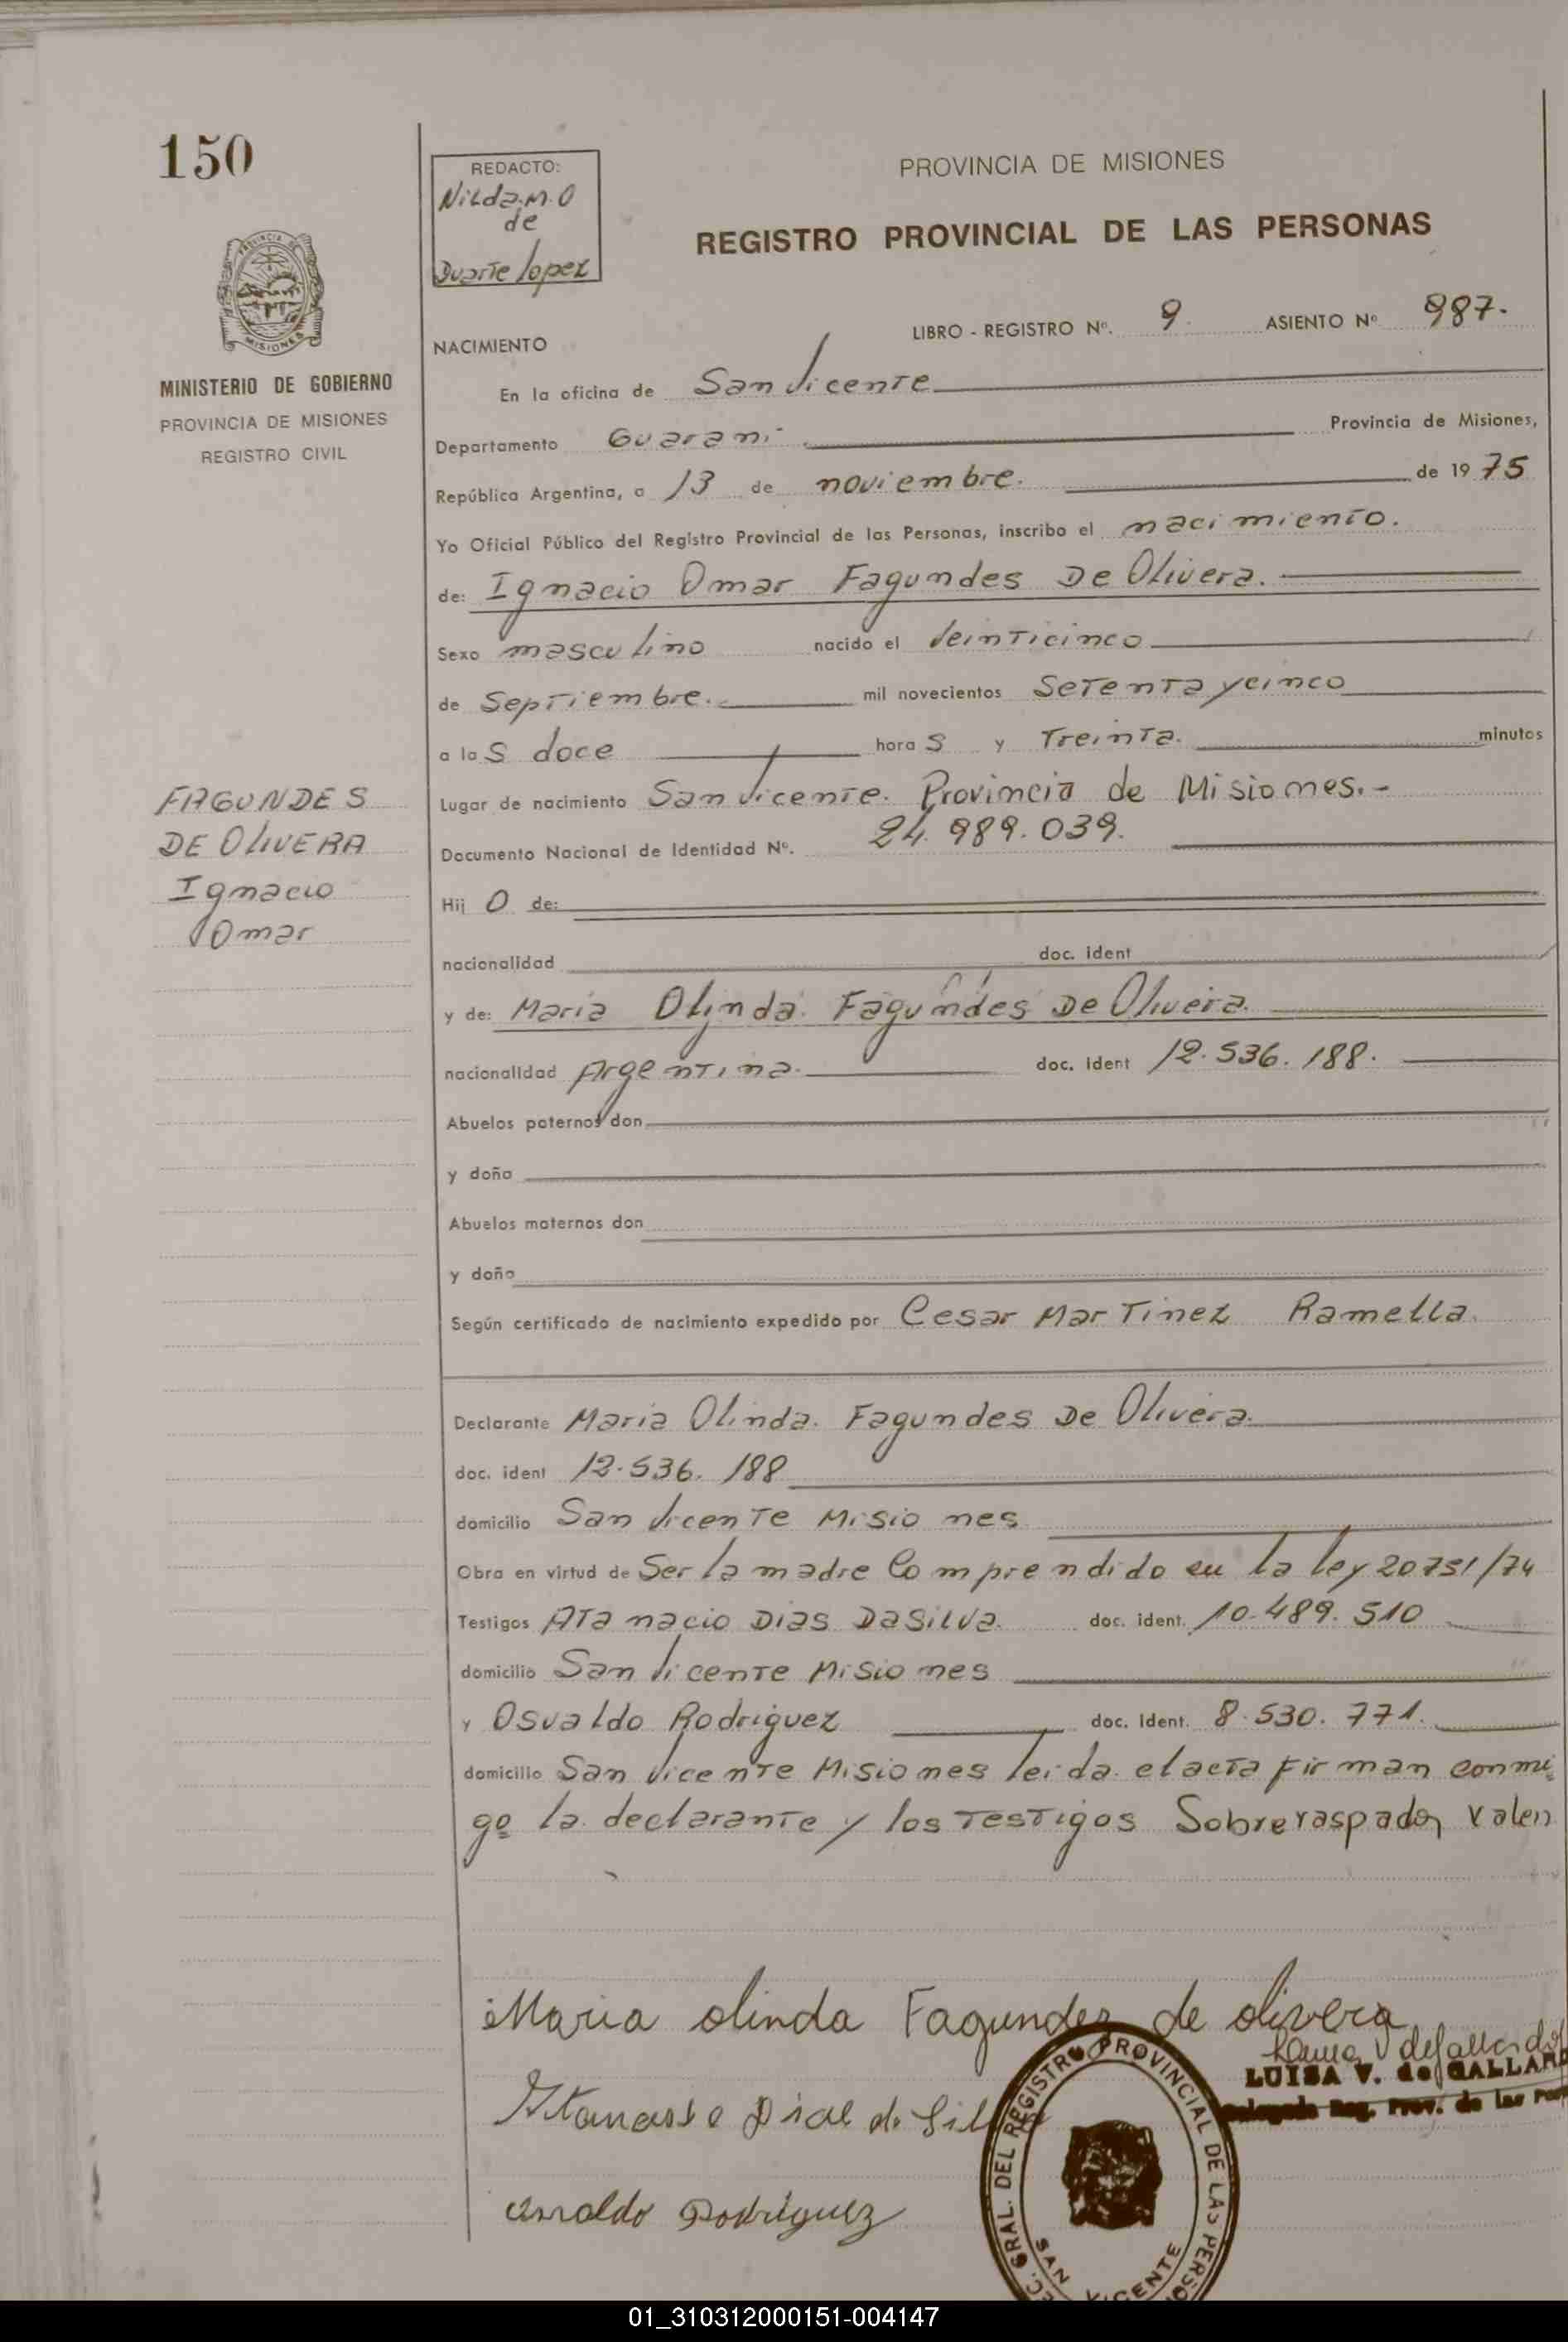 150
REDACTO:
Nilda.M.O
de
Duarte lopez
PROVINCIA DE MISIONES
REGISTRO PROVINCIAL DE LAS PERSONAS
PROVINCIA DE
MISIONES
MINISTERIO DE GOBIERNO
PROVINCIA DE MISIONES
REGISTRO CIVIL
LIBRO - REGISTRO Nº. 9. ASIENTO Nº 987.
NACIMIENTO
En la oficina de San Vicente
Departamento Guarani Provincia de Misiones,
República Argentina, a 13 de noviembre. de 1975
Yo Oficial Público del Registro Provincial de las Personas, inscribo el nacimiento.
de: Ignacio Omar Fagundes De Olivera.
Sexo masculino nacido el Veinticinco
de Septiembre. mil novecientos Setenta ycinco
a las doce horas y Treinta. minutos
Lugar de nacimiento San Vicente. Provincia de Misiones.-
Documento Nacional de Identidad Nº. 24.989.039.
FAGUNDES
DE OLIVERA
Ignacio
Omar
Hijo de:
nacionalidad doc. ident
y de: Maria Olinda. Fagundes De Olivera.
nacionalidad Argentina. doc. ident 12.536.188.
Abuelos paternos don
y doña
Abuelos maternos don
y doña
Según certificado de nacimiento expedido por Cesar Martinez Ramella.
Declarante Maria Olinda. Fagundes De Olivera.
doc. ident 12.536.188
domicilio San Vicente Misiones
Obra en virtud de Ser la madre Comprendido en la ley 20751/74
Testigos Atanacio Dias DaSilva. doc. ident. 10.489.510
domicilio San Vicente Misiones
y Osvaldo Rodriguez doc. ident. 8.530.771.
domicilio San Vicente Misiones leida el acta firman conmi
go la declarante y los testigos Sobreraspado, valen
Maria olinda Fagundez de olivera
LUISA V. de GALLARD
Delegada Reg. Prov. de las Per
Osvaldo Rodriguez
EC. GRAL. DEL REGISTRO PROVINCIAL DE LAS PERSO
SAN VICENTE
01_310312000151-004147